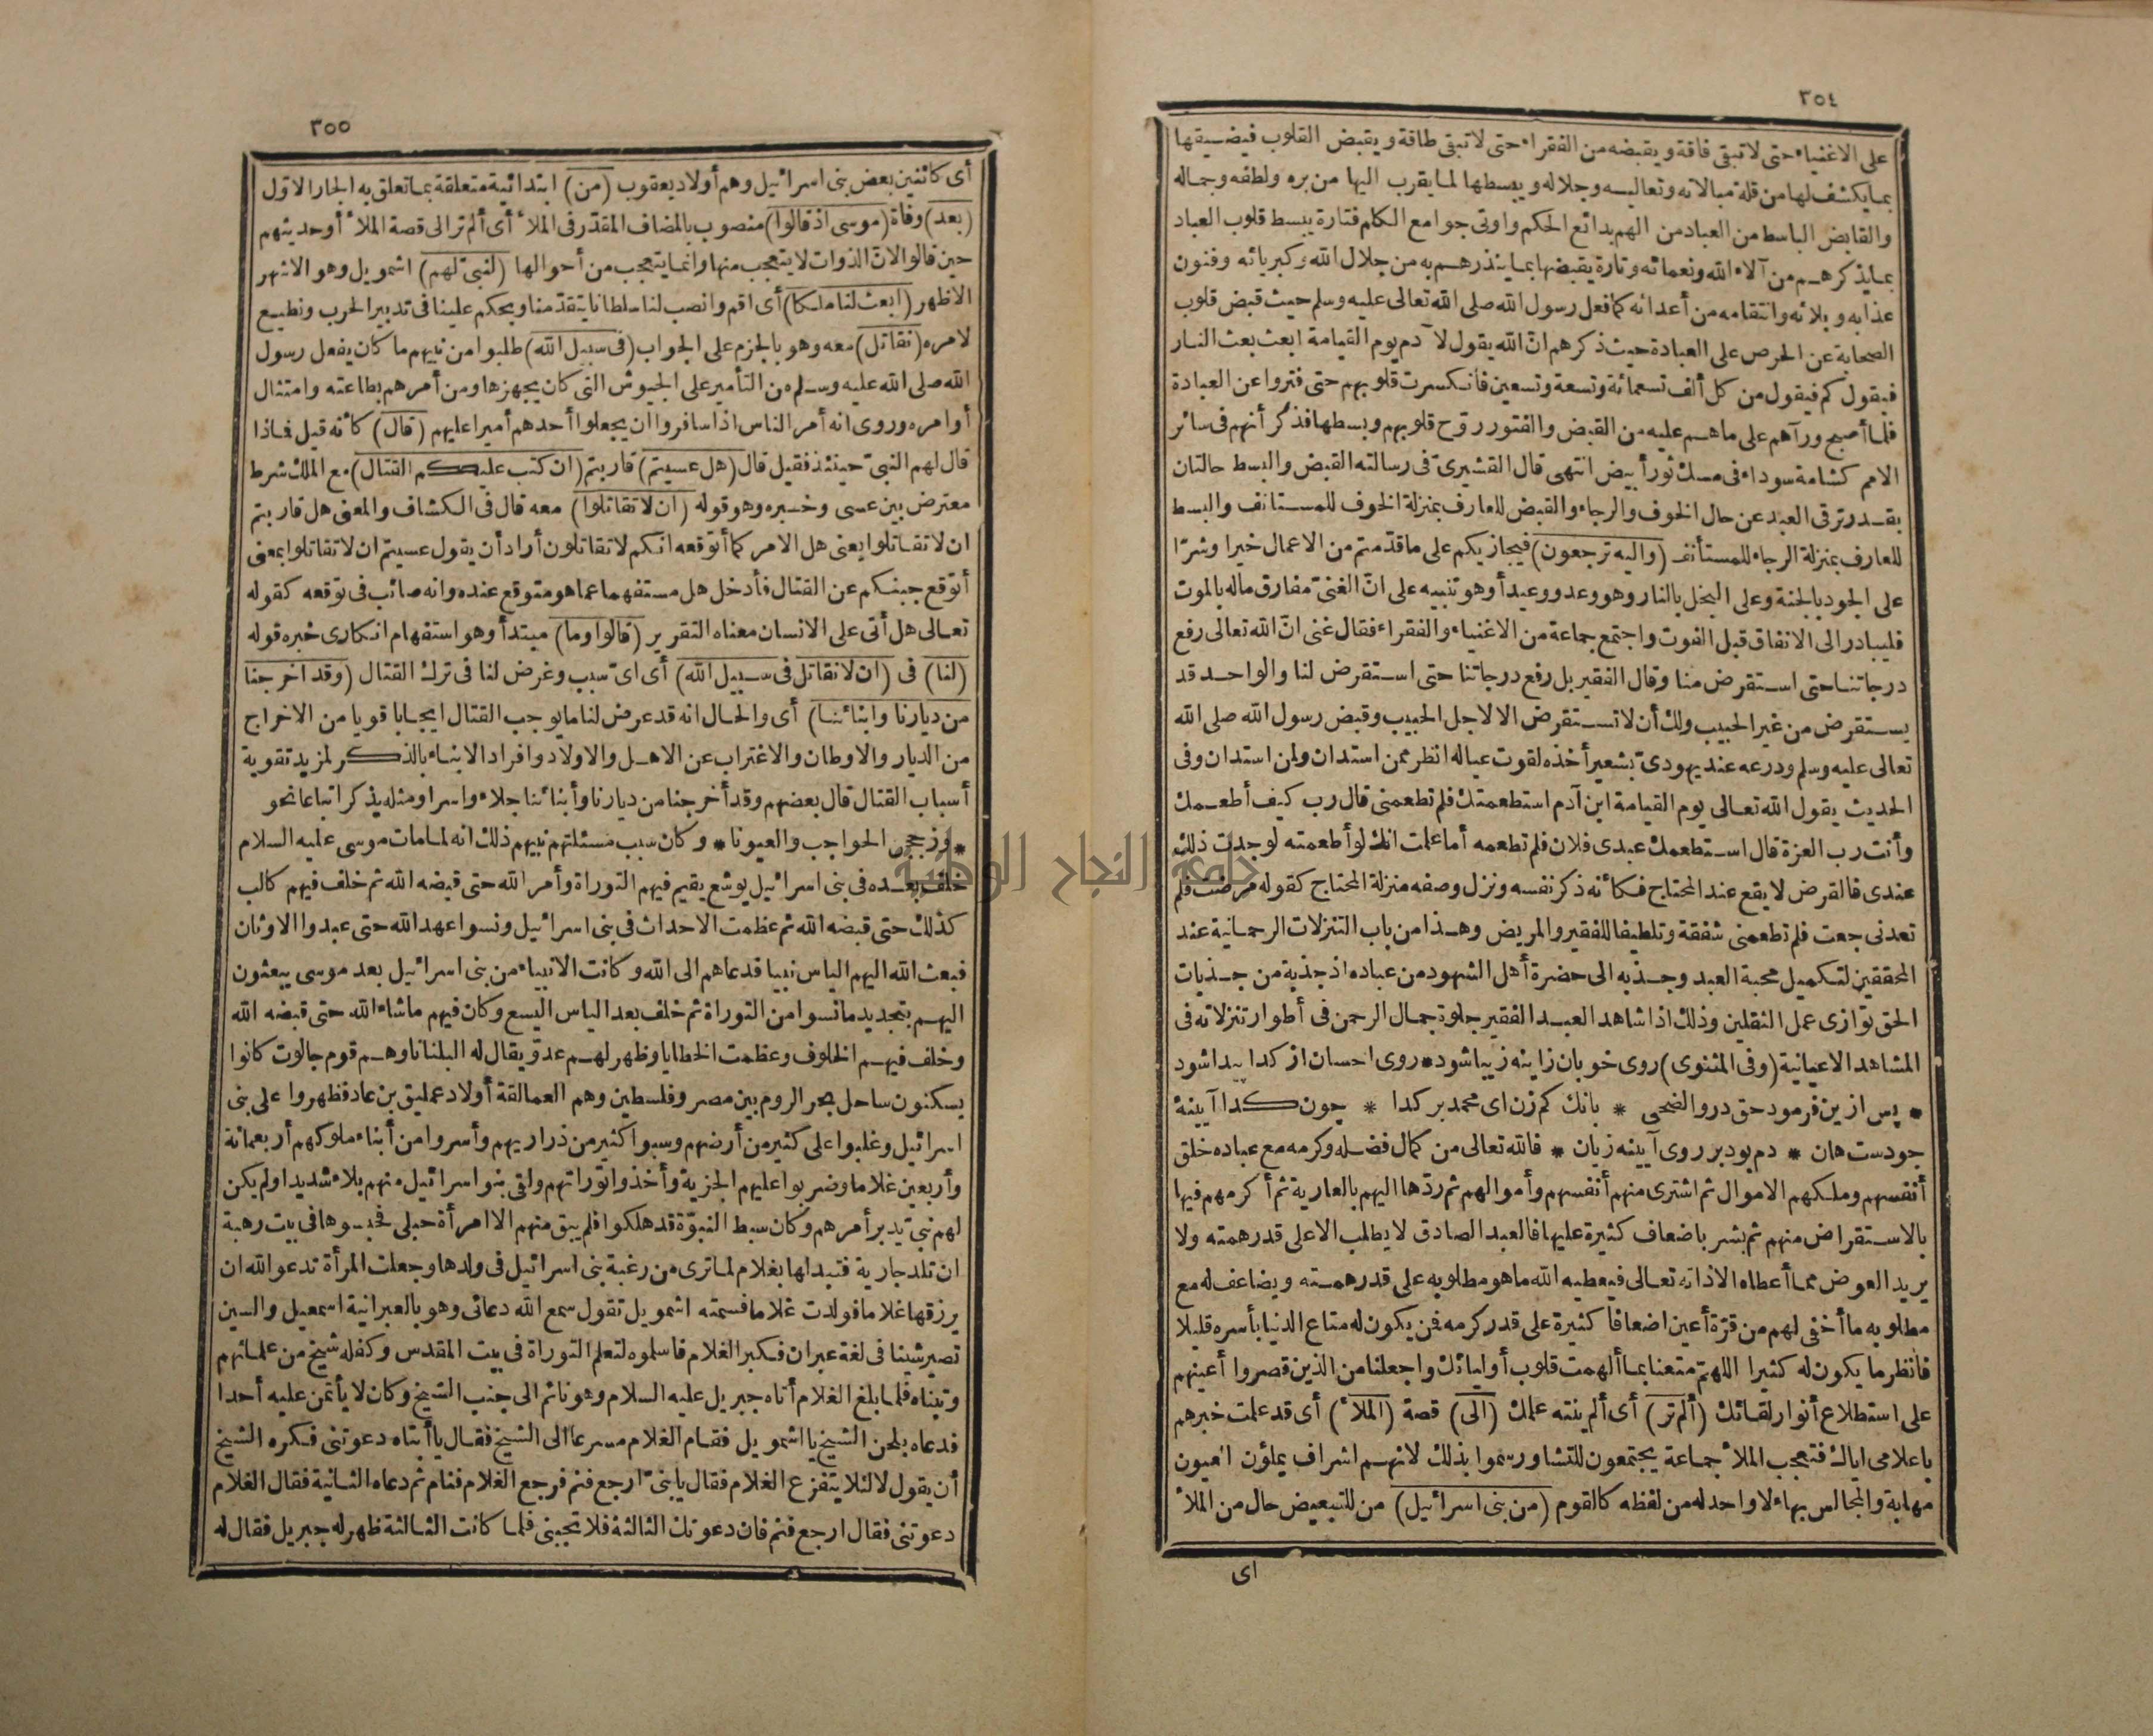 ٣٥٤
على الاغنياء حتى لا تبقى فاقة ويقبضه من الفقراء حتى لا تبقى طاقة ويقبض القلوب فيضيقها
بما يكشف لها من قلة مبالاته وتعاليه وجلاله ويبسطها لما يقرب اليها من بره ولطفه وجماله
والقابض الباسط من العباد من الهم بدائع الحكم واوتى جوامع الكلم فتارة يبسط قلوب العباد
بما يذكرهم من آلاء الله ونعمائه وتارة يقبضها بما ينذرهم به من جلال الله وكبريائه وفنون
عذابه وبلائه وانتقامه من أعدائه كما فعل رسول الله صلى الله تعالى عليه وسلم حيث قبض قلوب
الصحابة عن الحرص على العبادة حيث ذكرهم انّ الله يقول لآدم يوم القيامة ابعث بعث النار
فيقول كم فيقول من كل ألف تسعمائة وتسعة وتسعين فانكسرت قلوبهم حتى فتروا عن العبادة
فلما أصبح ورآهم على ما هم عليه من القبض والفتور روّح قلوبهم وبسطها فذكر أنهم فى سائر
الامم كشامة سوداء فى مسك ثور أبيض انتهى قال القشيرىّ فى رسالته القبض والبسط حالتان
بقدر ترقى العبد عن حال الخوف والرجاء والقبض للعارف بمنزلة الخوف للمستأنف والبسط
للعارف بمنزلة الرجاء للمستأنف (واليه ترجعون) فيجازيكم على ما قدّمتم من الاعمال خيرا وشرّا
على الجود بالجنة وعلى البخل بالنار وهو وعد ووعيد أو هو تنبيه على انّ الغنىّ مفارق ماله بالموت
فليبادر الى الانفاق قبل الفوت واجتمع جماعة من الاغنياء والفقراء فقال غنى انّ الله تعالى رفع
درجاتنا حتى استقرض منا وقال الفقير بل رفع درجاتنا حتى استقرض لنا والواحد قد
يستقرض من غير الحبيب ولك أن لا تستقرض الا لاجل الحبيب وقبض رسول الله صلى الله
تعالى عليه وسلم ودرعه عند يهودىّ بشعير أخذه لقوت عياله انظر ممن استدان ولمن استدان وفى
الحديث يقول الله تعالى يوم القيامة ابن آدم استطعمتك فلم تطعمنى قال رب كيف أطعمك
وأنت رب العزة قال استطعمك عبدى فلان فلم تطعمه أما علمت انك لو أطعمته لوجدت ذلك
عندى فالقرض لا يقع عند المحتاج فكأنه ذكر نفسه ونزل وصفه منزلة المحتاج كقوله مرضت فلم
تعدنى جعت فلم تطعمنى شفقة وتلطيفا للفقير والمريض وهذا من باب التنزلات الرحمانية عند
المحققين لتكميل محبة العبد وجذبه الى حضرة أهل الشهود من عباده اذ جذبة من جذبات
الحق توازى عمل الثقلين وذلك اذا شاهد العبد الفقير جلوة جمال الرحمن فى أطوار تنزلاته فى
المشاهد الاعيانية (وفى المثنوى) روى خوبان زاينه زيبا شود * روى احسان از كدا پيدا شود
* پس ازين فرمود حق در والضحى * بانك كم زن اى محمد بر كدا * چون كدا آيينهٔ
جودست هان * دم بود بر روى آيينه زيان * فالله تعالى من كمال فضله وكرمه مع عباده خلق
أنفسهم وملكهم الاموال ثم اشترى منهم أنفسهم وأموالهم ثم ردّها اليهم بالعارية ثم أكرمهم فيها
بالاستقراض منهم ثم بشر باضعاف كثيرة عليها فالعبد الصادق لا يطلب الا على قدر همته ولا
يريد العوض مما أعطاه الا ذاته تعالى فيعطيه الله ما هو مطلوبه على قدر همته ويضاعف له مع
مطلوبه ما أخفى لهم من قرّة أعين اضعافا كثيرة على قدر كرمه فمن يكون له متاع الدنيا بأسره قليلا
فانظر ما يكون له كثيرا اللهمّ متعنا بما ألهمت قلوب أوليائك واجعلنا من الذين قصروا أعينهم
على استطلاع أنوار لقائك (ألم تر) أى ألم ينته علمك (الى) قصة (الملأ) أى قد علمت خبرهم
باعلامى اياك فتعجب الملأ جماعة يجتمعون للتشاور سموا بذلك لانهم اشراف يملؤن العيون
مهابة والمجالس بهاء لا واحد له من لفظه كالقوم (من بنى اسرائيل) من للتبعيض حال من الملأ
اى
٣٥٥
أى كائنين بعض بنى اسرائيل وهم أولاد يعقوب (من) ابتدائية متعلقة بما تعلق به الجار الاوّل
(بعد) وفاة (موسى اذ قالوا) منصوب بالمضاف المقدّر فى الملأ أى ألم تر الى قصة الملأ أو حديثهم
حين قالوا لانّ الذوات لا يتعجب منها وانما يتعجب من أحوالها (لنبىّ لهم) اشمويل وهو الاشهر
الاظهر (ابعث لنا ملكا) أى اقم وانصب لنا سلطانا يتقدّمنا ويحكم علينا فى تدبير الحرب ونطيع
لامره (نقاتل) معه وهو بالجزم على الجواب (فى سبيل الله) طلبوا من نبيهم ما كان يفعل رسول
الله صلى الله عليه وسلم من التأمير على الجيوش التى كان يجهزها ومن أمرهم بطاعته وامتثال
أوامره وروى انه أمر الناس اذا سافروا ان يجعلوا أحدهم أميرا عليهم (قال) كأنه قيل فماذا
قال لهم النبىّ حينئذ فقيل قال (هل عسيتم) قاربتم (ان كتب عليكم القتال) مع الملك شرط
معترض بين عسى وخبره وهو قوله (ان لا تقاتلوا) معه قال فى الكشاف والمعنى هل قاربتم
ان لا تقاتلوا يعنى هل الامر كما أتوقعه انكم لا تقاتلون أراد أن يقول عسيتم ان لا تقاتلوا بمعنى
أتوقع جبنكم عن القتال فأدخل هل مستفهما عما هو متوقع عنده وانه صائب فى توقعه كقوله
تعالى هل أتى على الانسان معناه التقرير (قالوا وما) مبتدأ وهو استفهام انكارى خبره قوله
(لنا) فى (ان لا نقاتل فى سبيل الله) أى اىّ سبب وغرض لنا فى ترك القتال (وقد اخرجنا
من ديارنا وابنائنا) أى والحال انه قد عرض لنا ما يوجب القتال ايجابا قويا من الاخراج
من الديار والاوطان والاغتراب عن الاهل والاولاد وافراد الابناء بالذكر لمزيد تقوية
أسباب القتال قال بعضهم وقد أخرجنا من ديارنا وأبنائنا جلاء واسرا ومثله يذكر اتباعا نحو
* وزججن الحواجب والعيونا * وكان سبب مسئلتهم نبيهم ذلك انه لما مات موسى عليه السلام
خلف بعده فى بنى اسرائيل يوشع يقيم فيهم التوراة وأمر الله حتى قبضه الله ثم خلف فيهم كالب
كذلك حتى قبضه الله ثم عظمت الاحداث فى بنى اسرائيل ونسوا عهد الله حتى عبدوا الاوثان
فبعث الله اليهم الياس نبيا فدعاهم الى الله وكانت الانبياء من بنى اسرائيل بعد موسى يبعثون
اليهم بتجديد ما نسوا من التوراة ثم خلف بعد الياس اليسع وكان فيهم ما شاء الله حتى قبضه الله
وخلف فيهم الخلوف وعظمت الخطايا وظهر لهم عدوّ يقال له البلناثا وهم قوم جالوت كانوا
يسكنون ساحل بحر الروم بين مصر وفلسطين وهم العمالقة أولاد عمليق بن عاد فظهروا على بنى
اسرائيل وغلبوا على كثير من أرضهم وسبوا كثير من ذراريهم وأسروا من أبناء ملوكهم أربعمائة
وأربعين غلاما وضربوا عليهم الجزية وأخذوا توراتهم ولقى بنو اسرائيل منهم بلاء شديدا ولم يكن
لهم نبىّ يدبر أمرهم وكان سبط النبوّة قد هلكوا فلم يبق منهم الا امرأة حبلى فحبسوها فى بيت رهبة
ان تلد جارية فتبدلها بغلام لما ترى من رغبة بنى اسرائيل فى ولدها وجعلت المرأة تدعو الله ان
يرزقها غلاما فولدت غلاما فسمته اشمويل تقول سمع الله دعائى وهو بالعبرانية اسمعيل والسين
تصير شينا فى لغة عبران فكبر الغلام فاسلموه لتعلم التوراة فى بيت المقدس وكفله شيخ من علمائهم
وتبناه فلما بلغ الغلام أتاه جبريل عليه السلام وهو نائم الى جنب الشيخ وكان لا يأتمن عليه أحدا
فدعاه بلحن الشيخ يا اشمويل فقام الغلام مسرعا الى الشيخ فقال يا أبتاه دعوتنى فكره الشيخ
أن يقول لا لئلا يتفزع الغلام فقال يا بنىّ ارجع فنم فرجع الغلام فنام ثم دعاه الثانية فقال الغلام
دعوتنى فقال ارجع فنم فان دعوتك الثالثة فلا تجبنى فلما كانت الثالثة ظهر له جبريل فقال له
جامعة النجاح الوطنية